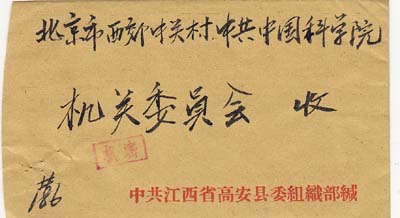 北京市西郊中关村.中共中国科学院
机关委员会 收
机密
中共江西省高安县委组織部缄